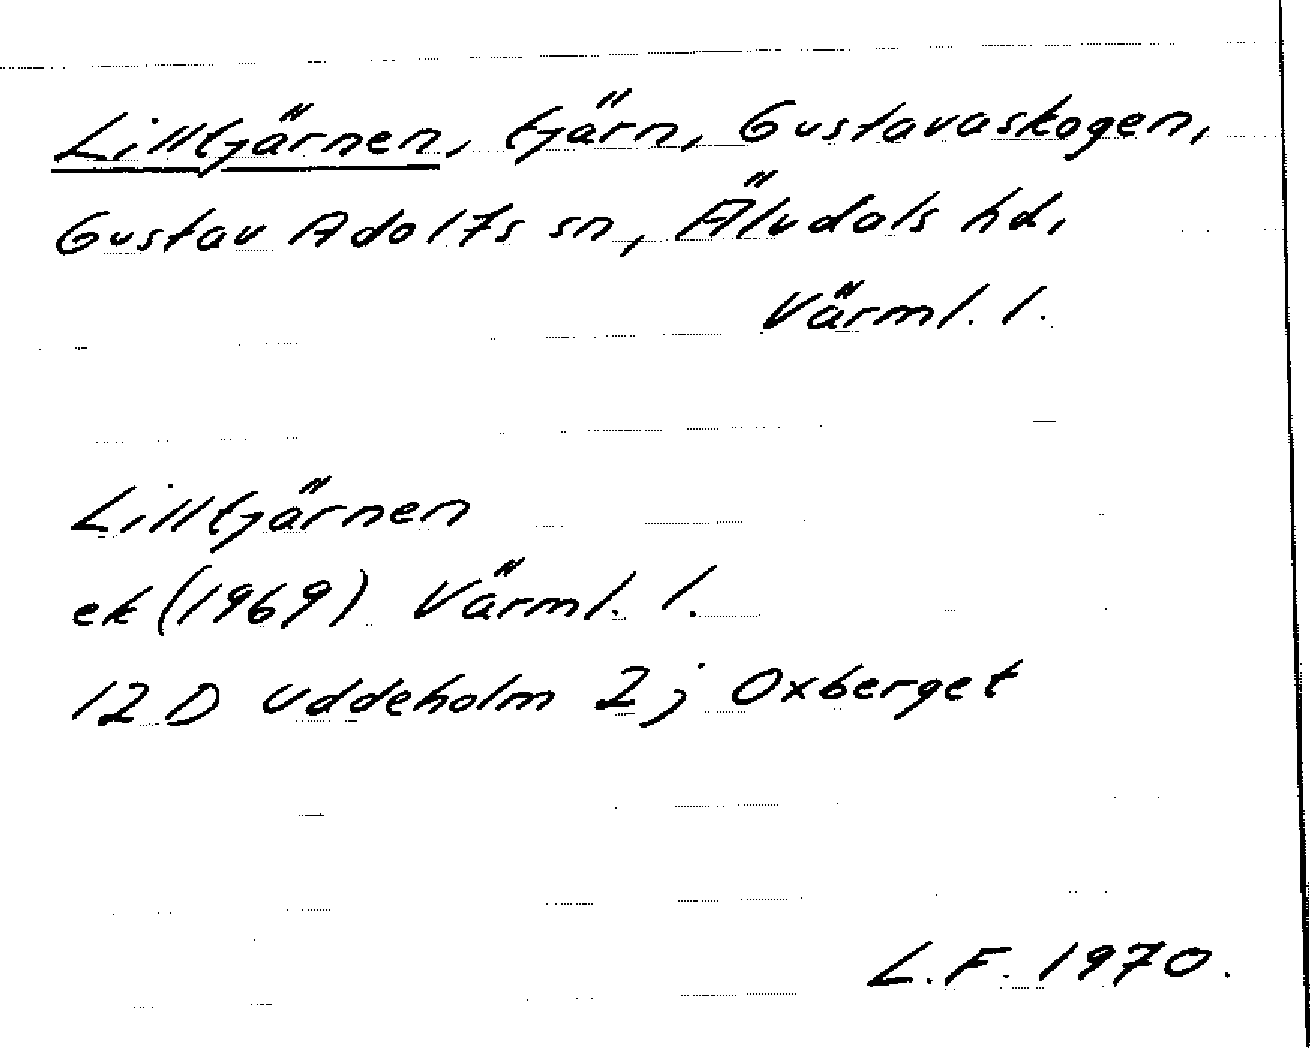 Lilltjärnen, tjärn, Gustavaskogen,
Gustav Adolfs sn, Älvdals hd,
Värml. l.
Lilltjärnen
ek (1969) Värml. l.
12 D Uddeholm 2 j Oxberget
L.F. 1970.